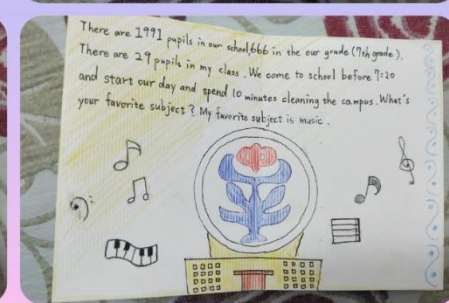 There are 1991 pupils in our school,666 in the our grade (7th grade).
There are 29 pupils in my class. We come to school before 7:20
and start our day and spend 10 minutes cleaning the campus. What's
your favorite subject? My favorite subject is music.